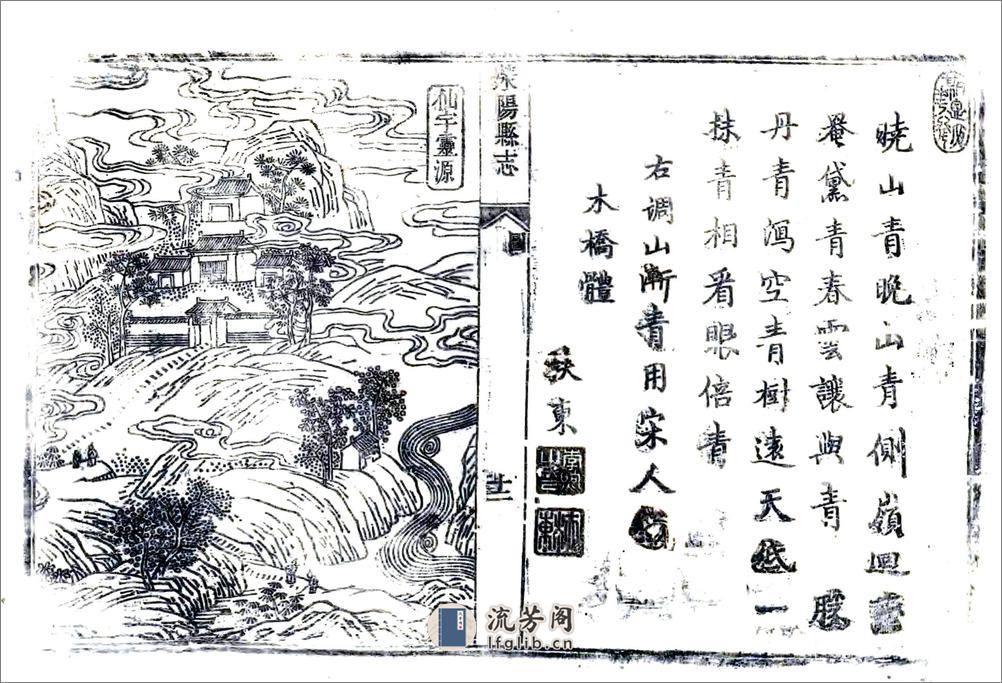 曉山青晚山青側嶺迴
黛青春雲讓與青
丹青瀉空青樹遠天低一
抹青相看眼倍青
右調山漸青用宋人
木橋體
東
陽縣志
圖
十二
仙宇靈源
流芳阁
lfglib.cn